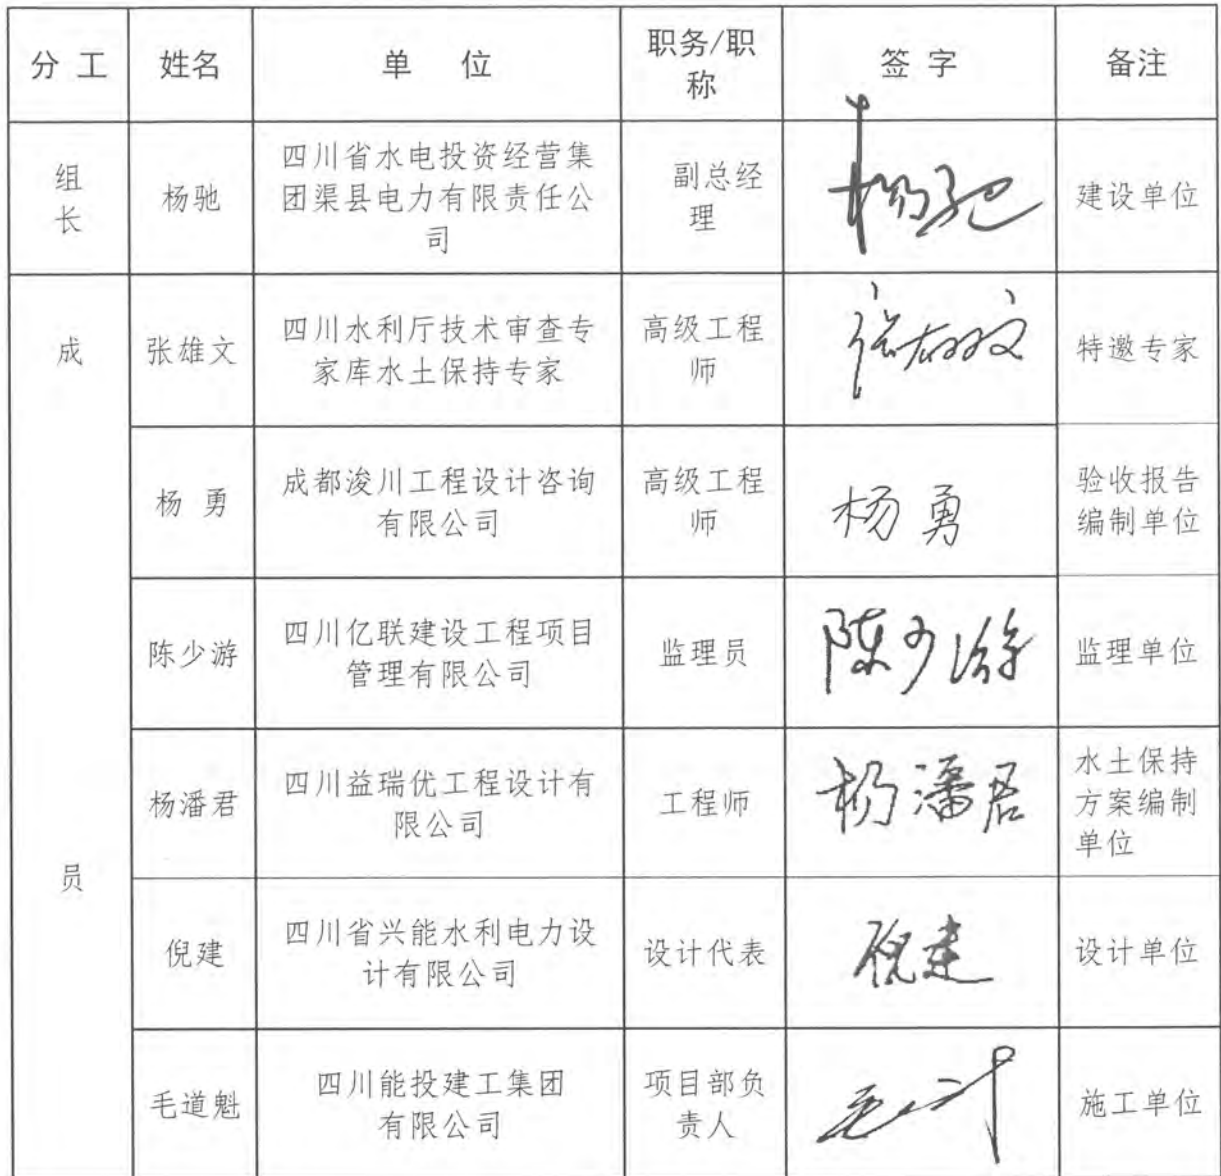 分 工 姓名 单 位 职务/职 签 字 备注
称
组
长
杨驰
四川省水电投资经营集
团渠县电力有限责任公
司
副总经
理
杨驰
建设单位
成
张雄文
四川水利厅技术审查专
家库水土保持专家
高级工程
师
张雄文
特邀专家
杨 勇
成都浚川工程设计咨询
有限公司
高级工程
师
杨勇
验收报告
编制单位
陈少游
四川亿联建设工程项目
管理有限公司
监理员
陈少游
监理单位
杨潘君
四川益瑞优工程设计有
限公司
工程师
杨潘君
水土保持
方案编制
单位
员
倪建
四川省兴能水利电力设
计有限公司
设计代表
倪建
设计单位
毛道魁
四川能投建工集团
有限公司
项目部负
责人
施工单位